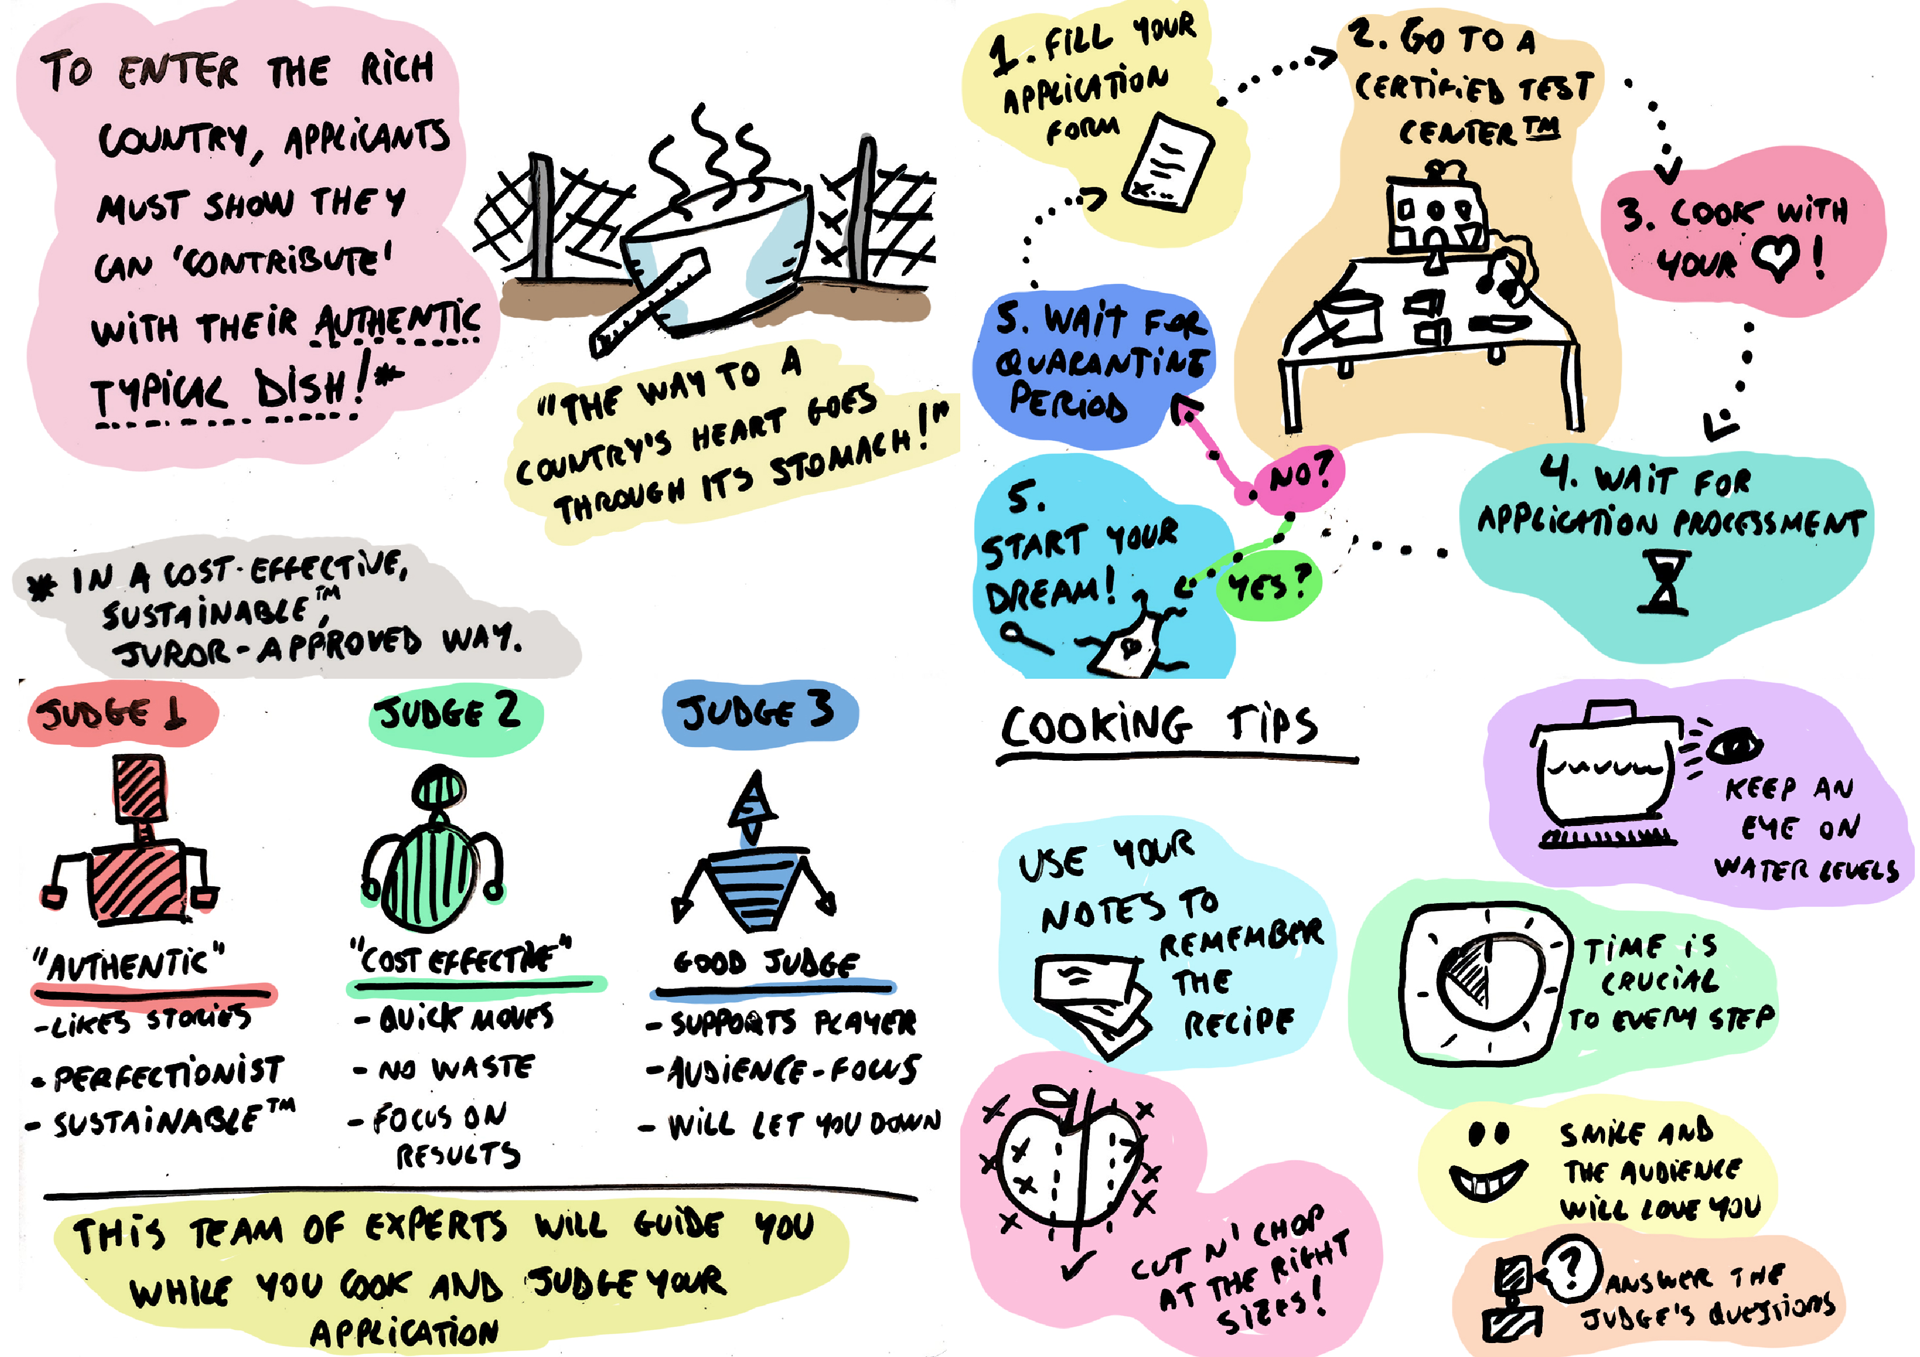 TO ENTER THE RICH
COUNTRY, APPLICANTS
MUST SHOW THEY
CAN 'CONTRIBUTE'
WITH THEIR AUTHENTIC
TYPICAL DISH!*
"THE WAY TO A
COUNTRY'S HEART GOES
THROUGH ITS STOMACH!"
* IN A COST-EFFECTIVE,
SUSTAINABLE™,
JUROR-APPROVED WAY.
1. FILL YOUR
APPLICATION
FORM
2. GO TO A
CERTIFIED TEST
CENTER™
3. COOK WITH
YOUR ♡!
4. WAIT FOR
APPLICATION PROCESSMENT
NO?
5. WAIT FOR
QUARANTINE
PERIOD
YES?
5.
START YOUR
DREAM!
JUDGE 1
"AUTHENTIC"
- LIKES STORIES
- PERFECTIONIST
- SUSTAINABLE™
JUDGE 2
"COST EFFECTIVE"
- QUICK MOVES
- NO WASTE
- FOCUS ON
RESULTS
JUDGE 3
GOOD JUDGE
- SUPPORTS PLAYER
- AUDIENCE-FOCUS
- WILL LET YOU DOWN
THIS TEAM OF EXPERTS WILL GUIDE YOU
WHILE YOU COOK AND JUDGE YOUR
APPLICATION
COOKING TIPS
KEEP AN
EYE ON
WATER LEVELS
USE YOUR
NOTES TO
REMEMBER
THE
RECIPE
TIME IS
CRUCIAL
TO EVERY STEP
CUT N' CHOP
AT THE RIGHT
SIZES!
SMILE AND
THE AUDIENCE
WILL LOVE YOU
?
ANSWER THE
JUDGE'S QUESTIONS